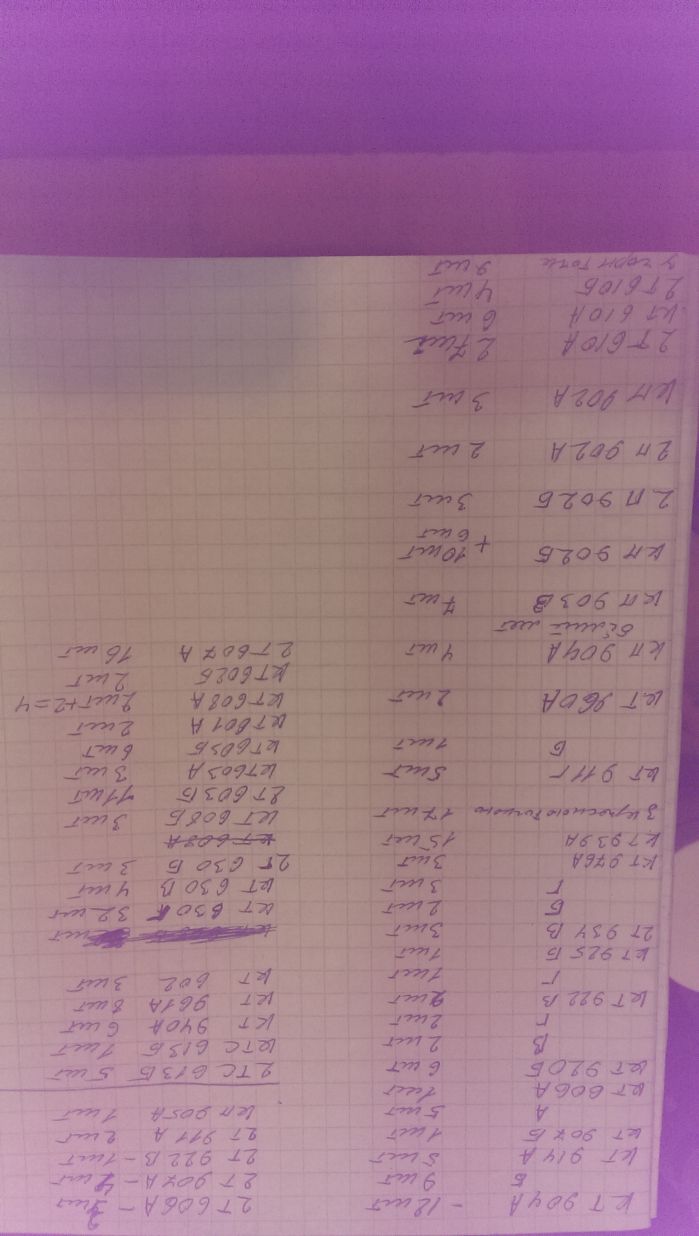 КТ 904А - 12шт
Б 9шт
КТ 914А 5шт
КТ 907Б 1шт
А 5шт
КТ 606А 1шт
КТ 920Б 6шт
В 2шт
Г 2шт
КТ 922В 2шт
Г 1шт
КТ 925Б 1шт
2Т 934В 3шт
Б 2шт
Г 3шт
КТ 976А 3шт
КТ 939А 15шт
З красною точкою 17шт
КТ 911Г 5шт
Б 1шт
КТ 960А 2шт
КП 904А 4шт
КП 903В 7шт
КП 902Б 10шт
+ 6шт
2П 902Б 3шт
2П 902А 2шт
КП 902А 3шт
2Т610А 27шт
КТ610А 6шт
2Т610Б 4шт
9шт
2Т606А -
2Т 907А -
2Т 922В - 1шт
2Т 911А 2шт
КП 905А 1шт
2ТС 613Б 5шт
КТС 613Б 1шт
КТ 940А 6шт
КТ 961А 8шт
КТ 602 3шт
КТ 630 32шт
КТ 630В 4шт
2Т 630Б 3шт
КТ 608А
КТ 608Б 3шт
2Т 603Б 11шт
КТ603А 3шт
КТ603Б 6шт
КТ601А 2шт
КТ602А 2шт+2=4
КТ602Б 2шт
2Т607А 16шт